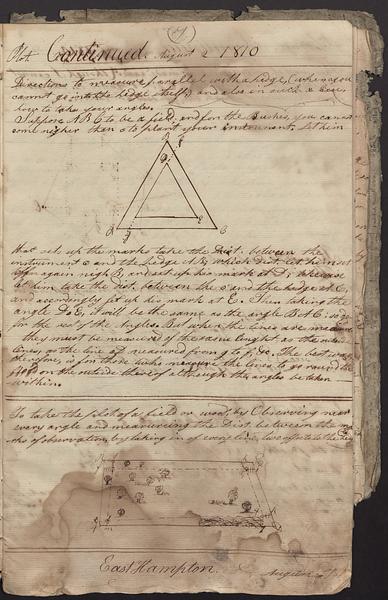 Plot Continued August 2 1810
Directions to measure parallel with a hedge, (when you
cannot go in the hedge itself) and also in such a case
how to take your angles.
Suppose ABC to be a field, and for the Bushes, you cannot
come nigher than o to plant your instrument. Let him
that sets up the marks take the Dist. between the
instrument o and the hedge AB; which dist. let him set
off again nigh B, and set up his mark at D; likewise
let him take the dist. between the o and the hedge AC,
and accordingly set up his mark at E. Then taking the
angle DoE, it will be the same as the angle BAC: so do
for the rest of the Angles. But when the lines are
they must be measured of the same lenght as the
lines, as the line measured from g to f, &c. The best way
therefore, is for them who measure the lines, to go round the
field on the outside thereof although the angles be taken
within.
To take the plot of a field or wood, by Observing near
every angle and measureing the Dist. between the
of observation, by taking in of every line, two offsets to the
East Hampton.
August